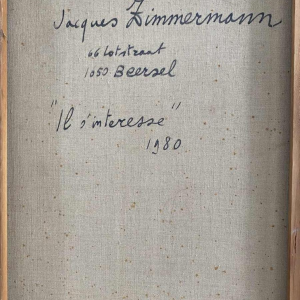 Jacques Zimmermann
66 Lotstraat
1650 Beersel
"Il s'interesse"
1980